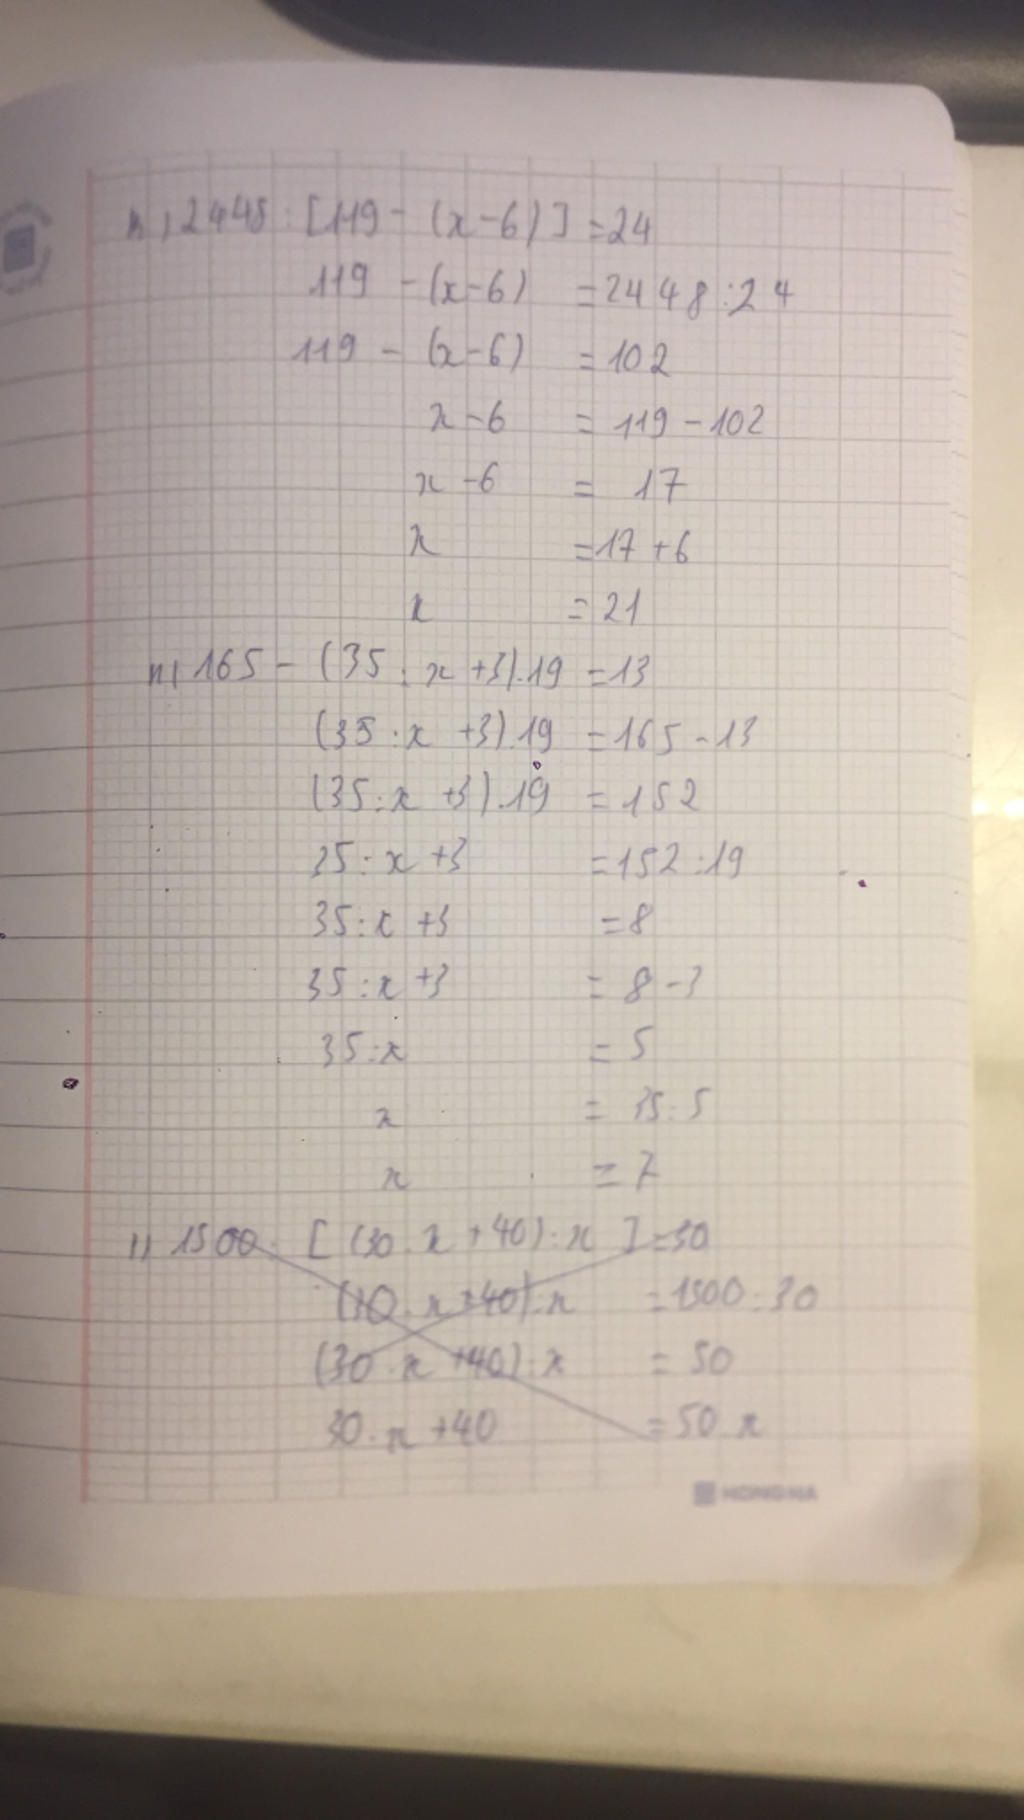 h, 2448 : [119 - (x-6)] = 24
119 - (x-6) = 2448 : 24
119 - (x-6) = 102
x - 6 = 119 - 102
x - 6 = 17
x = 17 + 6
x = 21
n, 165 - (35 : x + 3) . 19 = 13
(35 : x + 3) . 19 = 165 - 13
(35 : x + 3) . 19 = 152
35 : x + 3 = 152 : 19
35 : x + 3 = 8
35 : x + 3 = 8 - 3
35 : x = 5
x = 35 : 5
x = 7
1500 : [(30 . x + 40) : x] = 30
(30 . x + 40) : x = 1500 : 30
(30 . x + 40) : x = 50
30 . x + 40 = 50 . x
HONG HA